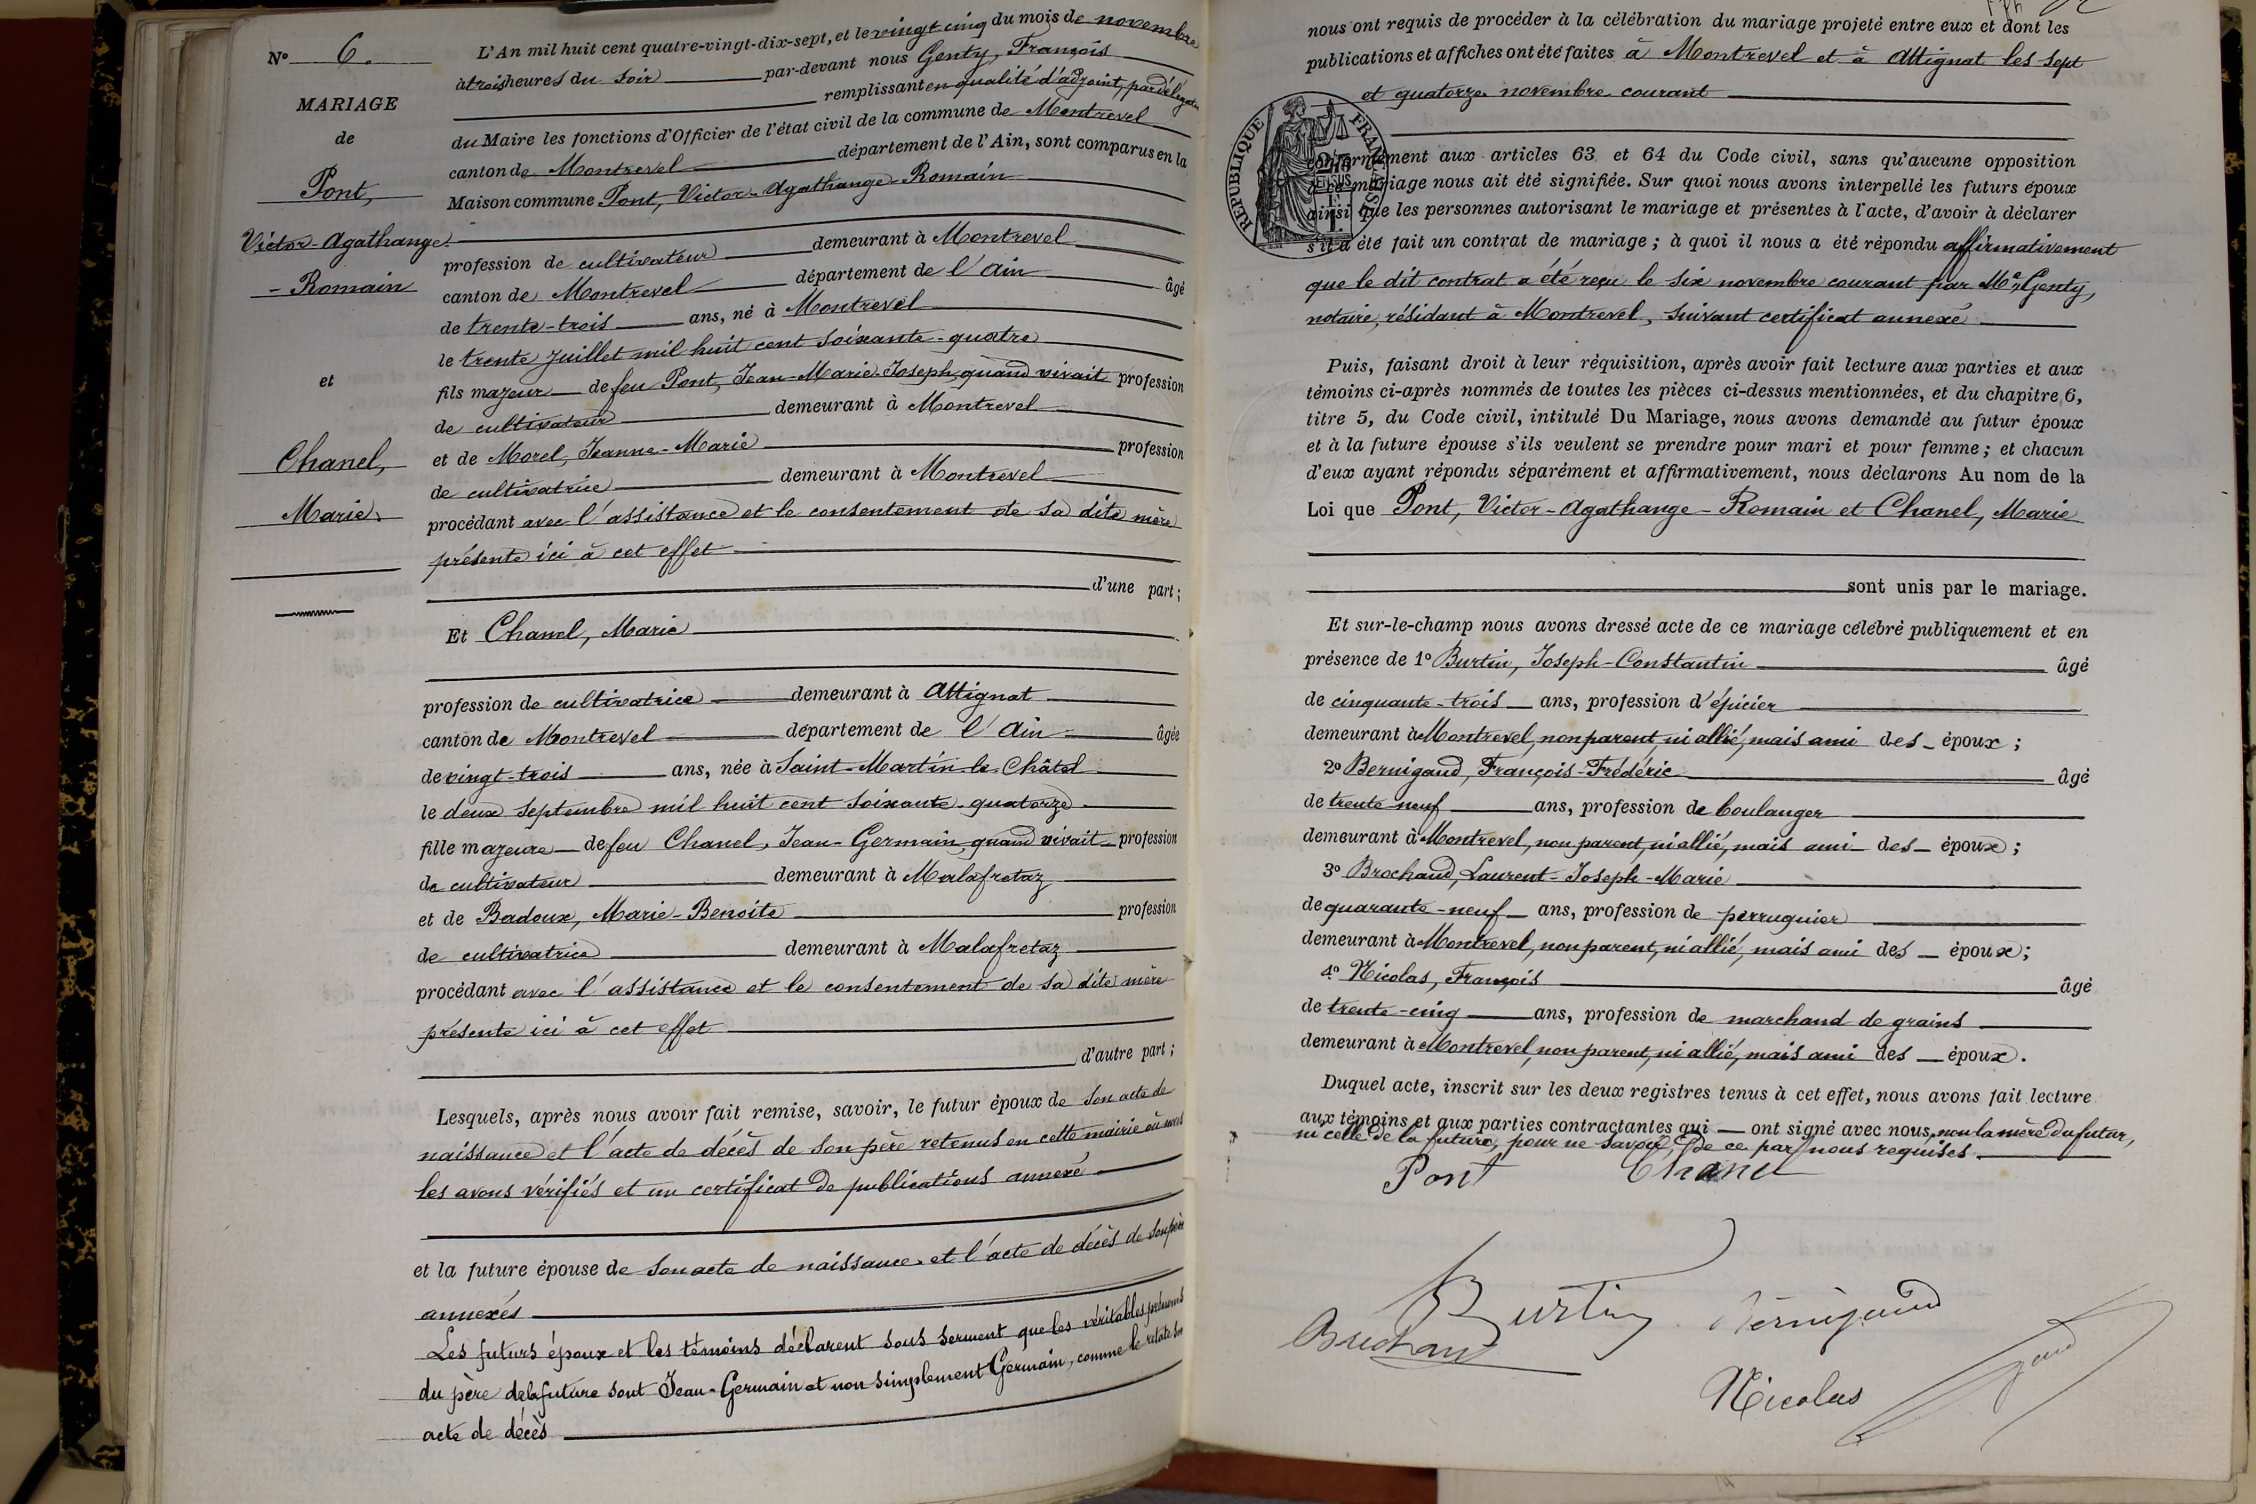 N° 6.
MARIAGE
de
Pont,
Victor-Agathange
- Romain
et
Chanel,
Marie.
L'An mil huit cent quatre-vingt-dix-sept, et le vingt cinq du mois de novembre
à trois heures du soir par-devant nous Genty, François
remplissant en qualité d'adjoint, par délégation
du Maire les fonctions d'Officier de l'état civil de la commune de Montrevel
canton de Montrevel département de l'Ain, sont comparus en la
Maison commune Pont, Victor-Agathange-Romain
profession de cultivateur demeurant à Montrevel
canton de Montrevel département de l'Ain âgé
de trente-trois ans, né à Montrevel
le trente juillet mil huit cent soixante-quatre
fils majeur de feu Pont, Jean-Marie-Joseph, quand vivait profession
de cultivateur demeurant à Montrevel
et de Morel, Jeanne-Marie profession
de cultivatrice demeurant à Montrevel
procédant avec l'assistance et le consentement de sa dite mère
présente ici à cet effet
d'une part;
Et Chanel, Marie
profession de cultivatrice demeurant à Attignat
canton de Montrevel département de l'Ain âgée
de vingt-trois ans, née à Saint-Martin-le-Châtel
le deux septembre mil huit cent soixante-quatorze
fille majeure de feu Chanel, Jean-Germain, quand vivait profession
de cultivateur demeurant à Malafretaz
et de Badoux, Marie-Benoite profession
de cultivatrice demeurant à Malafretaz
procédant avec l'assistance et le consentement de sa dite mère
présente ici à cet effet
d'autre part;
Lesquels, après nous avoir fait remise, savoir, le futur époux de son acte de
naissance et l'acte de décès de son père retenus en cette mairie où nous
les avons vérifiés et un certificat de publications annexé
et la future épouse de son acte de naissance et l'acte de décès de son père
annexés
Les futurs époux et les témoins déclarent sous serment que les véritables prénoms
du père de la future sont Jean-Germain et non simplement Germain, comme le relate son
acte de décès
nous ont requis de procéder à la célébration du mariage projeté entre eux et dont les
publications et affiches ont été faites à Montrevel et à Attignat les sept
et quatorze novembre courant
REPUBLIQUE FRANÇAISE
conformément aux articles 63 et 64 du Code civil, sans qu'aucune opposition
à ce mariage nous ait été signifiée. Sur quoi nous avons interpellé les futurs époux
ainsi que les personnes autorisant le mariage et présentes à l'acte, d'avoir à déclarer
s'il a été fait un contrat de mariage; à quoi il nous a été répondu affirmativement
que le dit contrat a été reçu le six novembre courant par Me Genty,
notaire, résidant à Montrevel, suivant certificat annexé
Puis, faisant droit à leur réquisition, après avoir fait lecture aux parties et aux
témoins ci-après nommés de toutes les pièces ci-dessus mentionnées, et du chapitre 6,
titre 5, du Code civil, intitulé Du Mariage, nous avons demandé au futur époux
et à la future épouse s'ils veulent se prendre pour mari et pour femme; et chacun
d'eux ayant répondu séparément et affirmativement, nous déclarons Au nom de la
Loi que Pont, Victor-Agathange-Romain et Chanel, Marie
sont unis par le mariage.
Et sur-le-champ nous avons dressé acte de ce mariage célébré publiquement et en
présence de 1° Burtin, Joseph-Constantin âgé
de cinquante-trois ans, profession d'épicier
demeurant à Montrevel, non parent, ni allié, mais ami des époux;
2° Bernigaud, François-Frédéric âgé
de trente-neuf ans, profession de boulanger
demeurant à Montrevel, non parent, ni allié, mais ami des époux;
3° Brochand, Laurent-Joseph-Marie
de quarante-neuf ans, profession de perruquier
demeurant à Montrevel, non parent, ni allié, mais ami des époux;
4° Nicolas, François âgé
de trente-cinq ans, profession de marchand de grains
demeurant à Montrevel, non parent, ni allié, mais ami des époux.
Duquel acte, inscrit sur les deux registres tenus à cet effet, nous avons fait lecture
aux témoins et aux parties contractantes qui ont signé avec nous, non la mère du futur,
ni celle de la future, pour ne savoir, de ce par nous requises.
Pont Chanel
Burtin Bernigaud
Brochand
Nicolas